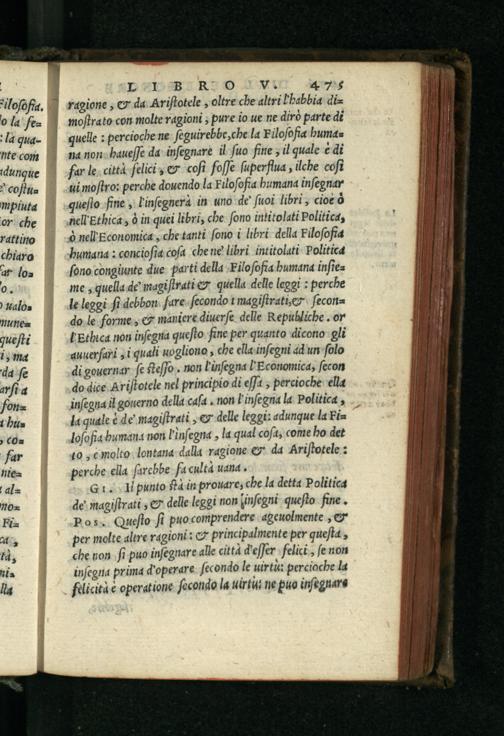 LIBRO V. 475
ragione, & da Aristotele, oltre che altri l'habbia di=
mostrato con molte ragioni, pure io ue ne dirò parte di
quelle: percioche ne seguirebbe, che la Filosofia huma=
na non hauesse da insegnare il suo fine, il quale è di
far le città felici, & così fosse superflua, ilche così
ui mostro: perche douendo la Filosofia humana insegnar
questo fine, l'insegnerà in uno de' suoi libri, cioe ò
nell'Ethica, ò in quei libri, che sono intitolati Politica,
ò nell'Economica, che tanti sono i libri della Filosofia
humana: conciosia cosa che ne' libri intitolati Politica
sono congiunte due parti della Filosofia humana insie=
me, quella de' magistrati & quella delle leggi: perche
le leggi si debbon fare secondo i magistrati, & secon=
do le forme, & maniere diuerse delle Republiche. or
l'Ethica non insegna questo fine per quanto dicono gli
auuersari, i quali uogliono, che ella insegni ad un solo
di gouernar se stesso. non l'insegna l'Economica, secon
do dice Aristotele nel principio di essa, percioche ella
insegna il gouerno della casa. non l'insegna la Politica,
la quale è de' magistrati, & delle leggi: adunque la Fi=
losofia humana non l'insegna, la qual cosa, come ho det
to, è molto lontana dalla ragione & da Aristotele:
perche ella sarebbe facultà uana.
GI. Il punto stà in prouare, che la detta Politica
de' magistrati, & delle leggi non insegni questo fine.
POS. Questo si può comprendere ageuolmente, &
per molte altre ragioni: & principalmente per questa,
che non si può insegnare alle città d'esser felici, se non
insegna prima d'operare secondo le uirtù: percioche la
felicità è operatione secondo la uirtù: ne può insegnare